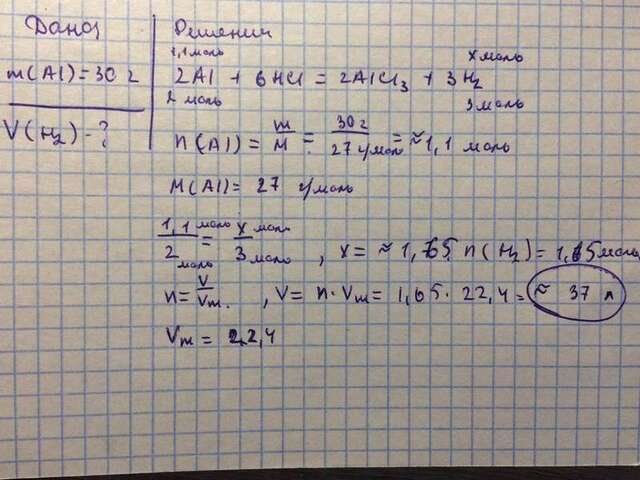 Дано:
m(Al) = 30 г
V(H₂) - ?
Решение
1,1 моль x моль
2Al + 6HCl = 2AlCl₃ + 3H₂
2 моль 3 моль
n(Al) = m/M = 30 г / 27 г/моль = ≈ 1,1 моль
M(Al) = 27 г/моль
1,1 моль / 2 моль = x / 3 моль , x = ≈ 1,65 n(H₂) = 1,65 моль
n = V/Vm. , V = n · Vm = 1,65 · 22,4 = ≈ 37 л
Vm = 22,4